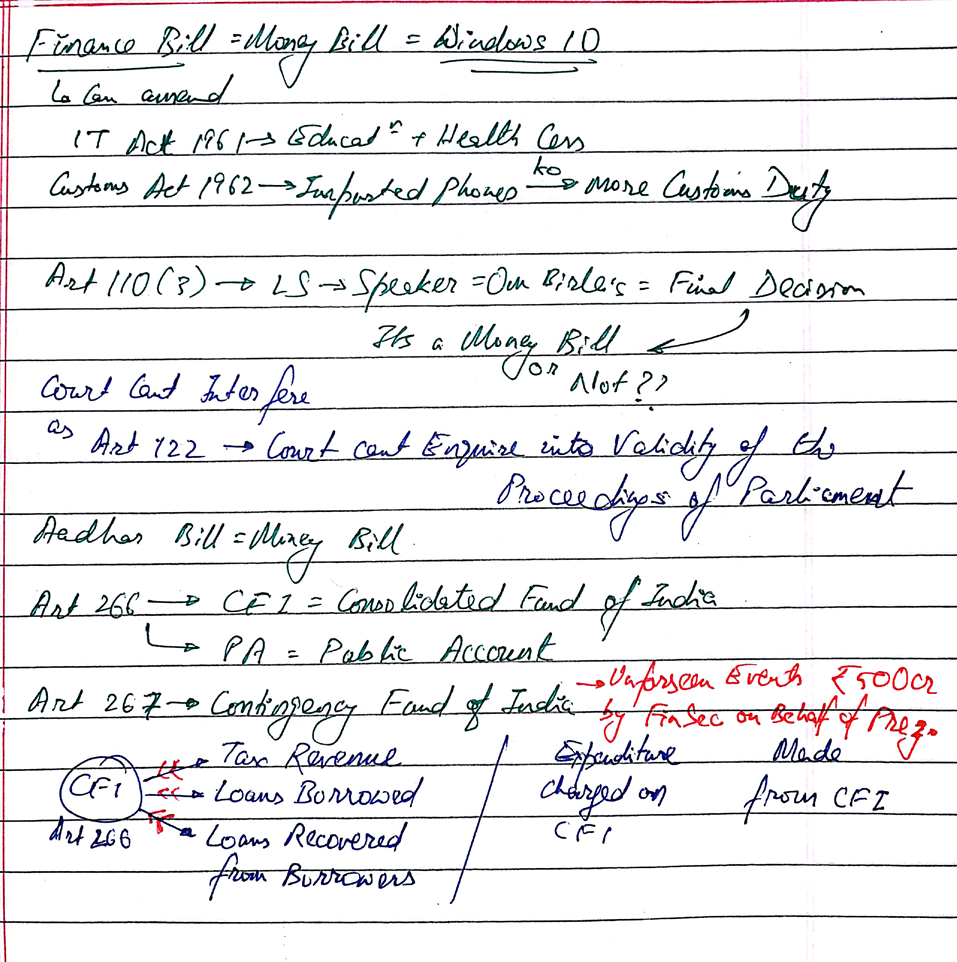 Finance Bill = Money Bill = Windows 10
↳ Can amend
IT Act 1961 → Educatⁿ + Health Cess
Customs Act 1962 → Imported Phones ko → More Customs Duty
Art 110(3) → LS → Speaker = Om Birla's = Final Decision
Its a Money Bill
or Not??
Court Cant Interfere
as Art 122 → Court cant Enquire into Validity of the
Proceedings of Parliament
Aadhar Bill = Money Bill
Art 266 → CFI = Consolidated Fund of India
↳ PA = Public Account
Art 267 → Contingency Fund of India → Unforseen Events ₹500cr
by FinSec on Behalf of Prez.
CFI
Art 266
→ Tax Revenue
→ Loans Borrowed
→ Loans Recovered
from Borrowers
Expenditure Made
charged on from CFI
CFI